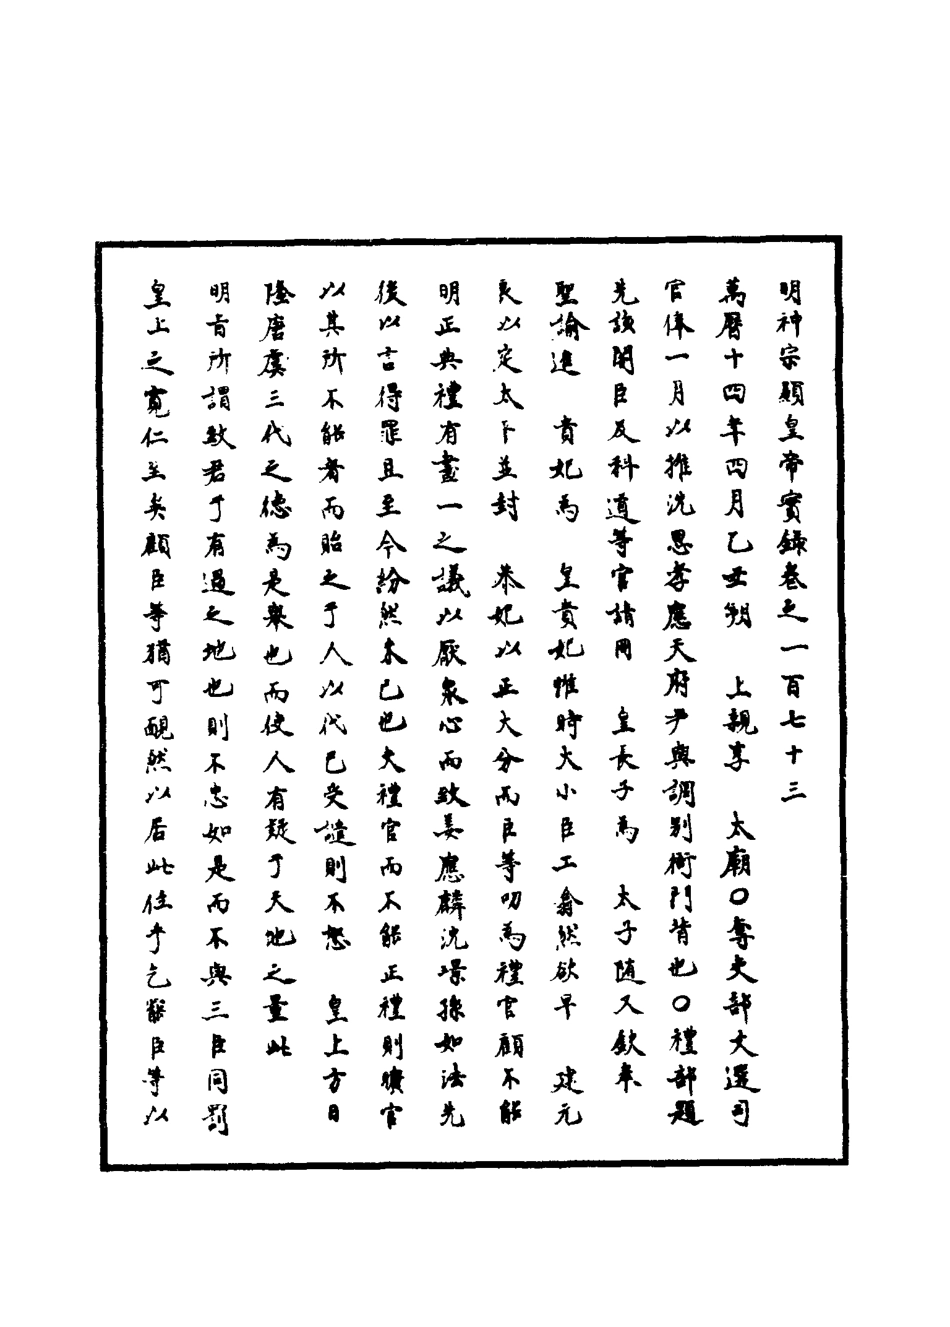 明神宗顯皇帝實錄卷之一百七十三
萬曆十四年四月乙丑朔　上親享　太廟○奪吏部文選司
官俸一月以推沈思孝應天府尹與調別衙門背也○禮部題
先該閣臣及科道等官請冊　皇長子為　太子随又欽奉
聖諭進　貴妃為　皇貴妃惟時大小臣工翕然欲早　建元
良以定太下並封　恭妃以正大分而臣等叨為禮官顧不能
明正典禮有畫一之議以厭衆心而致姜應麟沈璟孫如法先
後以言得罪且至今紛然未已也夫禮官而不能正禮則曠官
以其所不能者而貽之于人以代已受譴則不恕　皇上方日
隆唐虞三代之德為是舉也而使人有疑于天地之量此
明旨所謂致君于有過之地也則不忠如是而不與三臣同罰
皇上之寬仁至矣顧臣等猶可靦然以居此位乎乞罷臣等以